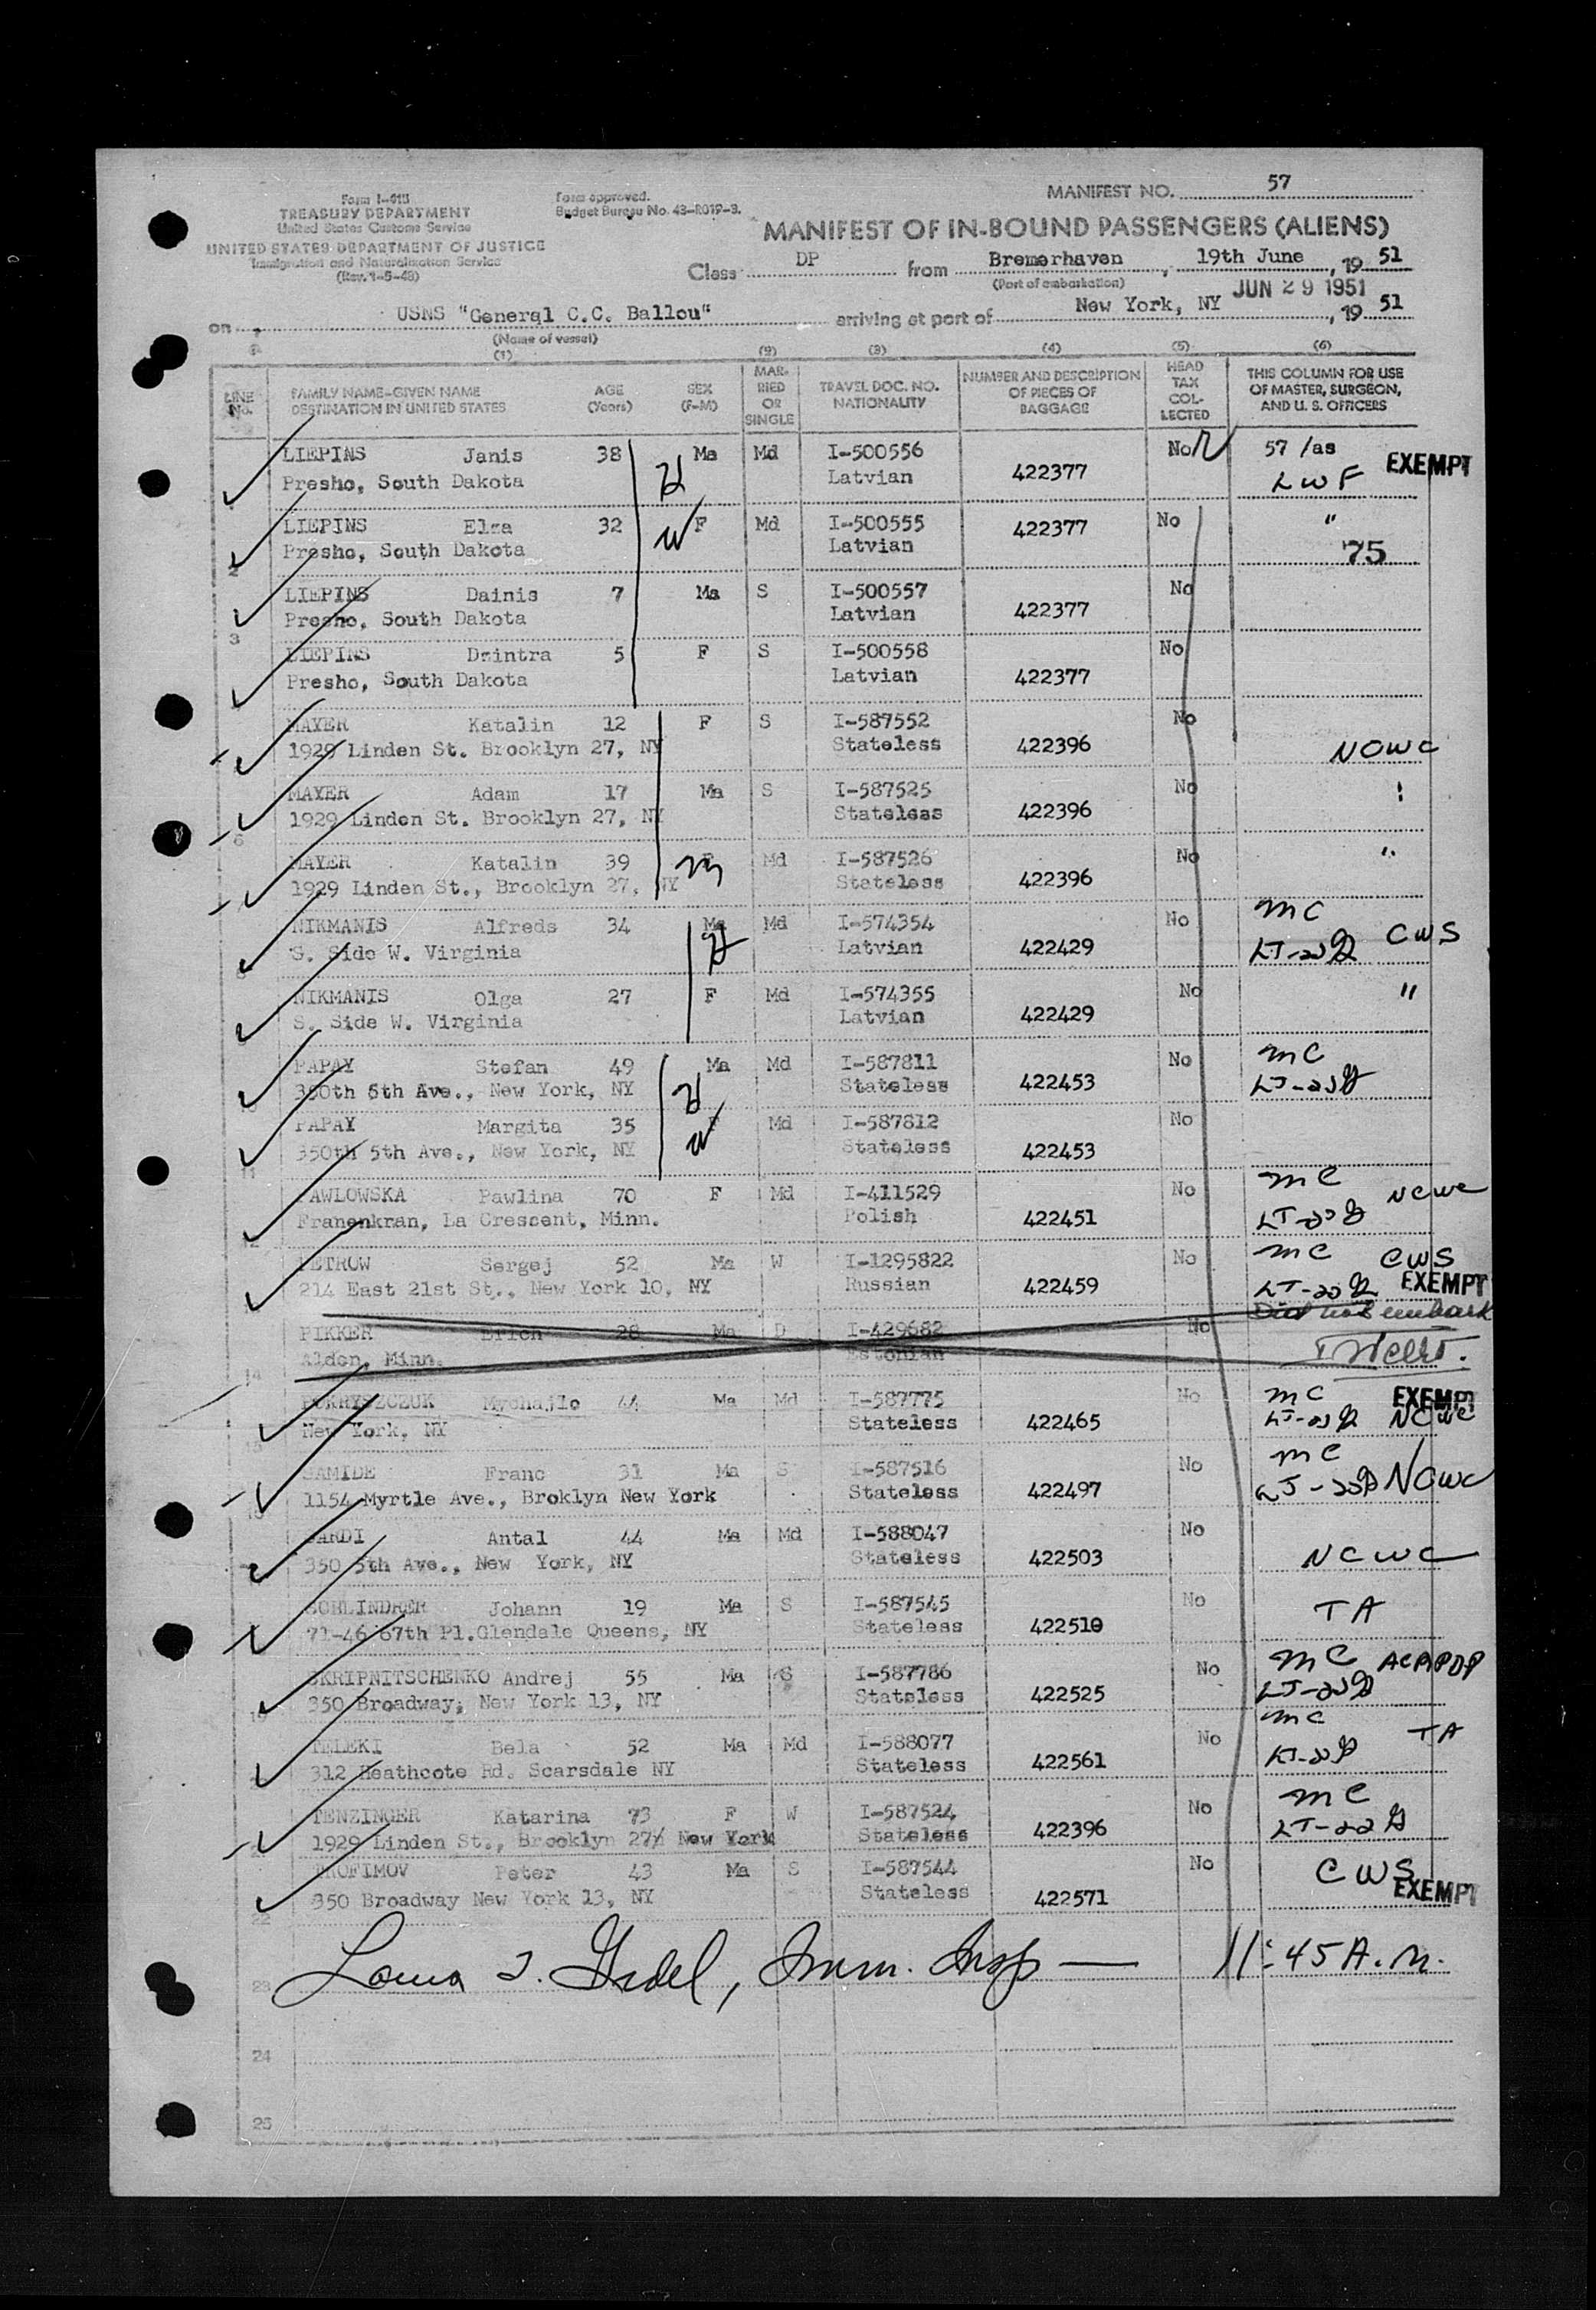 Form I-418
TREASURY DEPARTMENT
United States Customs Service
UNITED STATES DEPARTMENT OF JUSTICE
Immigration and Naturalization Service
(Rev. 1-5-48)
Form approved.
Budget Bureau No. 43-R019-3.
MANIFEST NO. 57
MANIFEST OF IN-BOUND PASSENGERS (ALIENS)
Class DP from Bremerhaven, 19th June, 19 51
(Port of embarkation)
JUN 29 1951
on USNS "General C.C. Ballou" arriving at port of New York, NY, 19 51
(Name of vessel)
(1) (2) (3) (4) (5) (6)
LINE No. FAMILY NAME-GIVEN NAME DESTINATION IN UNITED STATES AGE (Years) SEX (F-M) MARRIED OR SINGLE TRAVEL DOC. NO. NATIONALITY NUMBER AND DESCRIPTION OF PIECES OF BAGGAGE HEAD TAX COLLECTED THIS COLUMN FOR USE OF MASTER, SURGEON, AND U. S. OFFICERS
LIEPINS Janis 38 Ma Md I-500556 No 57 /as EXEMPT
Presho, South Dakota H Latvian 422377 LWF
LIEPINS Elza 32 F Md I-500555 422377 No "
Presho, South Dakota W Latvian 75
2
LIEPINS Dainis 7 Ma S I-500557 No
Presho, South Dakota Latvian 422377
3
LIEPINS Dzintra 5 F S I-500558 No
Presho, South Dakota Latvian 422377
MAYER Katalin 12 F S I-587552 No
1929 Linden St. Brooklyn 27, NY Stateless 422396 NCWC
MAYER Adam 17 Ma S I-587525 No "
1929 Linden St. Brooklyn 27, NY Stateless 422396
6
MAYER Katalin 39 F Md I-587526 No "
1929 Linden St., Brooklyn 27, NY M Stateless 422396
NIKMANIS Alfreds 34 Ma Md I-574354 No MC
S. Side W. Virginia H Latvian 422429 CWS
NIKMANIS Olga 27 F Md I-574355 No "
S. Side W. Virginia Latvian 422429
PAPAY Stefan 49 Ma Md I-587811 No MC
350th 5th Ave., New York, NY H Stateless 422453
PAPAY Margita 35 F Md I-587812 No
350th 5th Ave., New York, NY W Stateless 422453
11
PAWLOWSKA Pawlina 70 F Md I-411529 No MC NCWC
Franenkran, La Crescent, Minn. Polish 422451
12
PETROW Sergej 52 Ma W I-1295822 No MC CWS
214 East 21st St., New York 10, NY Russian 422459 EXEMPT
Did not embark
PIKKER Erich 28 Ma D I-429682 No
Alden, Minn. Estonian
14
POKRYSZCZUK Mychajlo 44 Ma Md I-587775 No MC EXEMPT
New York, NY Stateless 422465 NCWC
15
SAMIDE Franc 31 Ma S I-587516 No MC
1154 Myrtle Ave., Broklyn New York Stateless 422497 NCWC
SARDI Antal 44 Ma Md I-588047 No
350 5th Ave., New York, NY Stateless 422503 NCWC
SCHLINDRER Johann 19 Ma S I-587545 No TA
71-46 67th Pl.Glendale Queens, NY Stateless 422510
SKRIPNITSCHENKO Andrej 55 Ma S I-587786 No MC
350 Broadway, New York 13, NY Stateless 422525
TELEKI Bela 52 Ma Md I-588077 No MC TA
312 Heathcote Rd. Scarsdale NY Stateless 422561
TENZINGER Katarina 73 F W I-587524 No MC
1929 Linden St., Brooklyn 27, New York Stateless 422396
TROFIMOV Peter 43 Ma S I-587544 No CWS
350 Broadway New York 13, NY Stateless 422571 EXEMPT
22
Imm. Insp — 11:45 A.M.
23
24
25